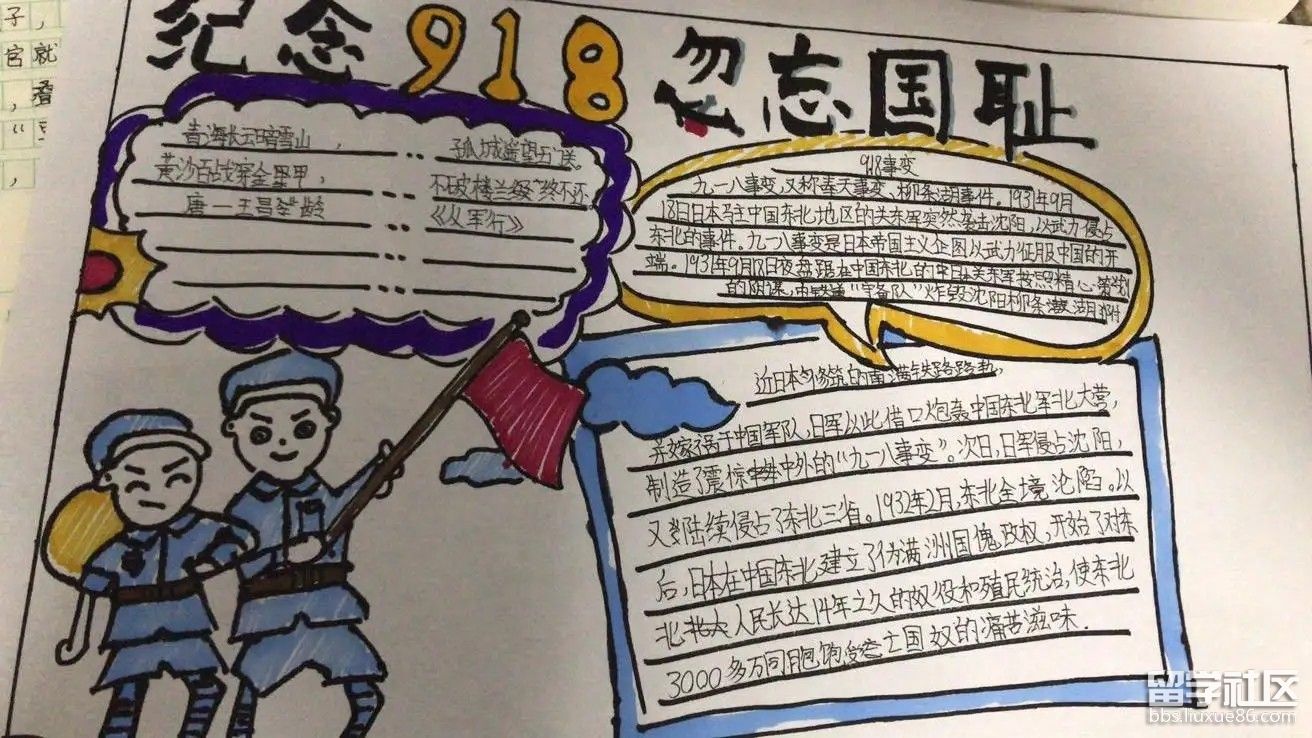 纪念918 勿忘国耻
青海长云暗雪山, 孤城遥望玉
黄沙百战穿金甲, 不破楼兰终不还
唐一王昌龄 《从军行》
918事变
九一八事变,又称奉天事变、柳条湖事件。1931年9月
18日日本驻中国东北地区的关东军突然袭击沈阳,以武力侵占
东北的事件。九一八事变是日本帝国主义企图以武力征服中国的开
端。1931年9月18日夜盘踞在中国东北的日本关东军按照精心策划
的阴谋,由铁道“守备队”炸毁沈阳柳条湖附
近日本修筑的南满铁路路轨,
并嫁祸于中国军队,日军以此借口炮轰中国东北军北大营,
制造了震惊中外的“九一八事变”。次日,日军侵占沈阳,
又陆续侵占了东北三省。1932年2月,东北全境沦陷。以
后,日本在中国东北建立了伪满洲国傀政权,开始了对东
北人民长达14年之久的奴役和殖民统治,使东北
3000多万同胞饱受亡国奴的痛苦滋味.
子,
官就
,看
“
,
留学社区
bbs.liuxue86.com